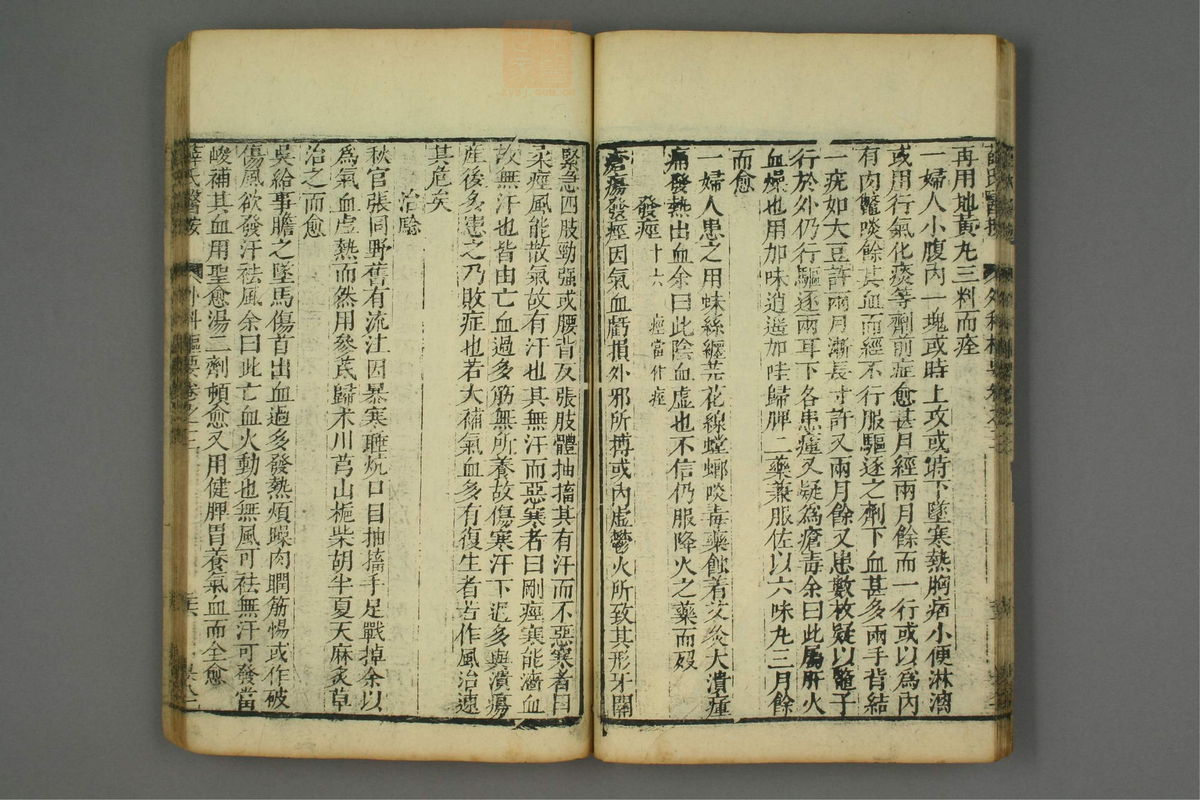 再用地黃丸三料而痊
一婦人小腹內一塊或時上攻或時下墜寒熱胸痞小便淋滴
或用行氣化痰等劑前症愈甚月經兩月餘而一行或以為內
有肉鱉啖餘其血而經不行服驅逐之劑下血甚多兩手背結
一疣如大豆許兩月漸長寸許又兩月餘又患數枚疑以鱉子
行於外仍行驅逐兩耳下各患瘇又疑為瘡毒余曰此屬肝火
血燥也用加味逍遥加味歸脾二藥兼服佐以六味丸三月餘
而愈
一婦人患之用蛛絲纏芫花線螳螂啖毒藥蝕着艾灸大潰瘇
痛發熱出血余曰此陰血虛也不信仍服降火之藥而歿
發痙十六 痙當作痓
瘡瘍發痙因氣血虧損外邪所搏或內虛鬱火所致其形牙關
緊急四肢勁强或腰背反張肢體抽搐其有汗而不惡寒者曰
柔痙風能散氣故有汗也其無汗而惡寒者曰剛痙寒能濇血
故無汗也皆由亡血過多筋無所養故傷寒汗下過多與潰瘍
産後多患之乃敗症也若大補氣血多有復生者若作風治速
其危矣
治驗
秋官張同野舊有流注因暴寒睡炕口目抽搐手足戰掉余以
為氣血虛熱而然用參芪歸朮川芎山梔柴胡半夏天麻炙草
治之而愈
吳給事贍之墜馬傷首出血過多發熱煩躁肉瞤筋惕或作破
傷風欲發汗祛風余曰此亡血火動也無風可祛無汗可發當
峻補其血用聖愈湯二劑頓愈又用健脾胃養氣血而全愈
薛氏醫按 外科樞要卷之三